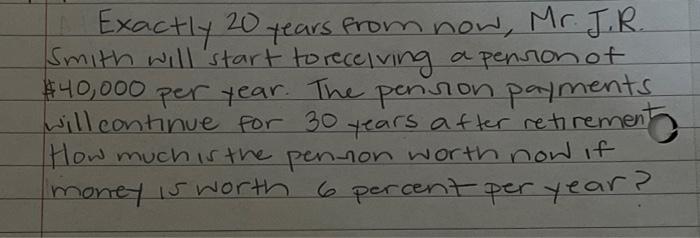 Exactly 20 years from now, Mr. J.R.
Smith will start to receiving a pension of
$40,000 per year. The pension payments
will continue for 30 years after retirement
How much is the pension worth now if
money is worth 6 percent per year?